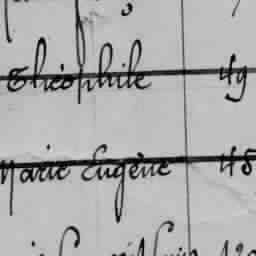 Théophile 49
Marie Eugène 48